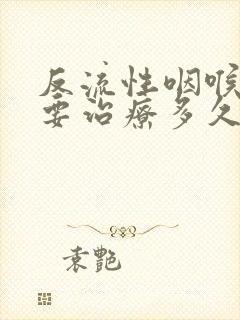 反流性咽喉
要治疗多久
袁艷